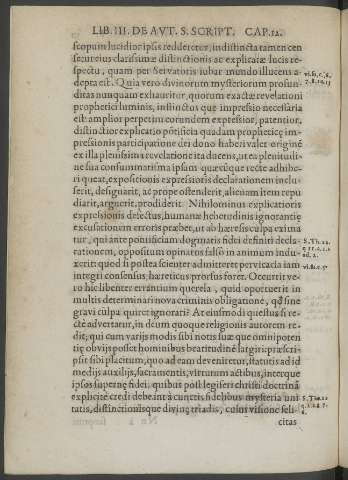 LIB. III. DE AVT. S. SCRIPT. CAP. 12.
scopum lucidior ipsis redderetur, indistincta tamen cen
setur eius clarissimæ distinctionis ac explicatæ lucis re-
spectu, quam per Servatoris iubar mundo illucens a-
depta est. Quia vero divinorum mysteriorum profun-
ditas nunquam exhauritur, quorum exactæ revelationi
prophetici luminis, instinctus que impressio necessaria
est amplior perpetim eorundem expressior, patentior,
distinctior explicatio pōtificia quadam propheticę im-
pressionis participatione dei dono haberi valet origine
ex illa plenissima revelatione ita ducens, ut ex plenitudi-
ne sua consummatissima ipsum quæcũque recte adhibe-
ri queat, expositionis expressioris declarationem inclu-
serit, designarit, ac prope ostenderit, alienam item repu
diarit, arguerit, prodiderit. Nihilominus explicatioris
expressionis defectus, humanæ hebetudinis ignorantię
excusationem erroris præbet, ut ab hæresis culpa exima
tur, qui ante pontificiam dogmatis fidei definiti decla-
rationem, oppositum opinatus falso in animum indu-
xerit quod si postea scienter admitteret pervicacia iam
integri consensus, hæreticus prorsus foret. Occurrit ve-
ro hic libenter errantium querela, quid oportuerit in
multis determinari nova criminis obligatione, qđ sine
gravi culpa quiret ignorari? At eiusmodi questus si re-
cte advertatur, in deum quoque religionis autorem re-
dit; qui cum varijs modis sibi notis suæ que omnipoten
tię obvijs posset hominibus beatitudinē largiri: præscri-
psit sibi placitum, quo ad eam deveniretur, statutis ad id
medijs auxilijs, sacramentis, virtutum actibus, interque
ipsos supernę fidei: quibus post legiferi christi doctrinā
explicite credi debeāt à cunctis fidelibus mysteria uni
tatis, distinctionisque divinę triadis, cuius visione feli-
citas
S. Th. 22.
vi. ſs. c. 9.
S. Th. 22